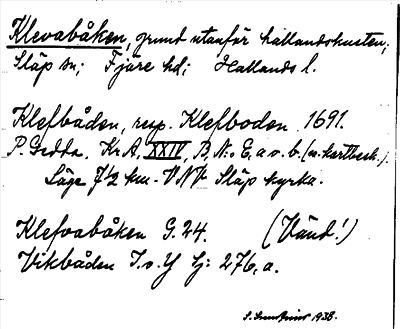 Klevabåken, grund utanför hallandskusten,
Släp sn; Fjäre hd; Hallands l.
Klefbåden, resp. Klefboden 1691.
P. Gedda. Kr.A, XXIV, B, N:o E, a o. b. (m. kartbeskr.).
Läge 7½ km. VNV Släp kyrka.
Klefvabåken G. 24. (Vänd!)
Vikbåden I. o. Y Sj: 276, a.
1938.